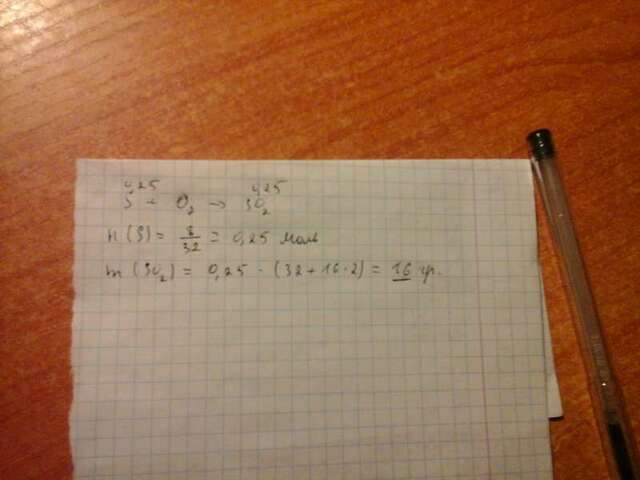 0,25 0,25
S + O₂ → SO₂
n (S) = 8/32 = 0,25 моль
m (SO₂) = 0,25 · (32 + 16·2) = 16 гр.